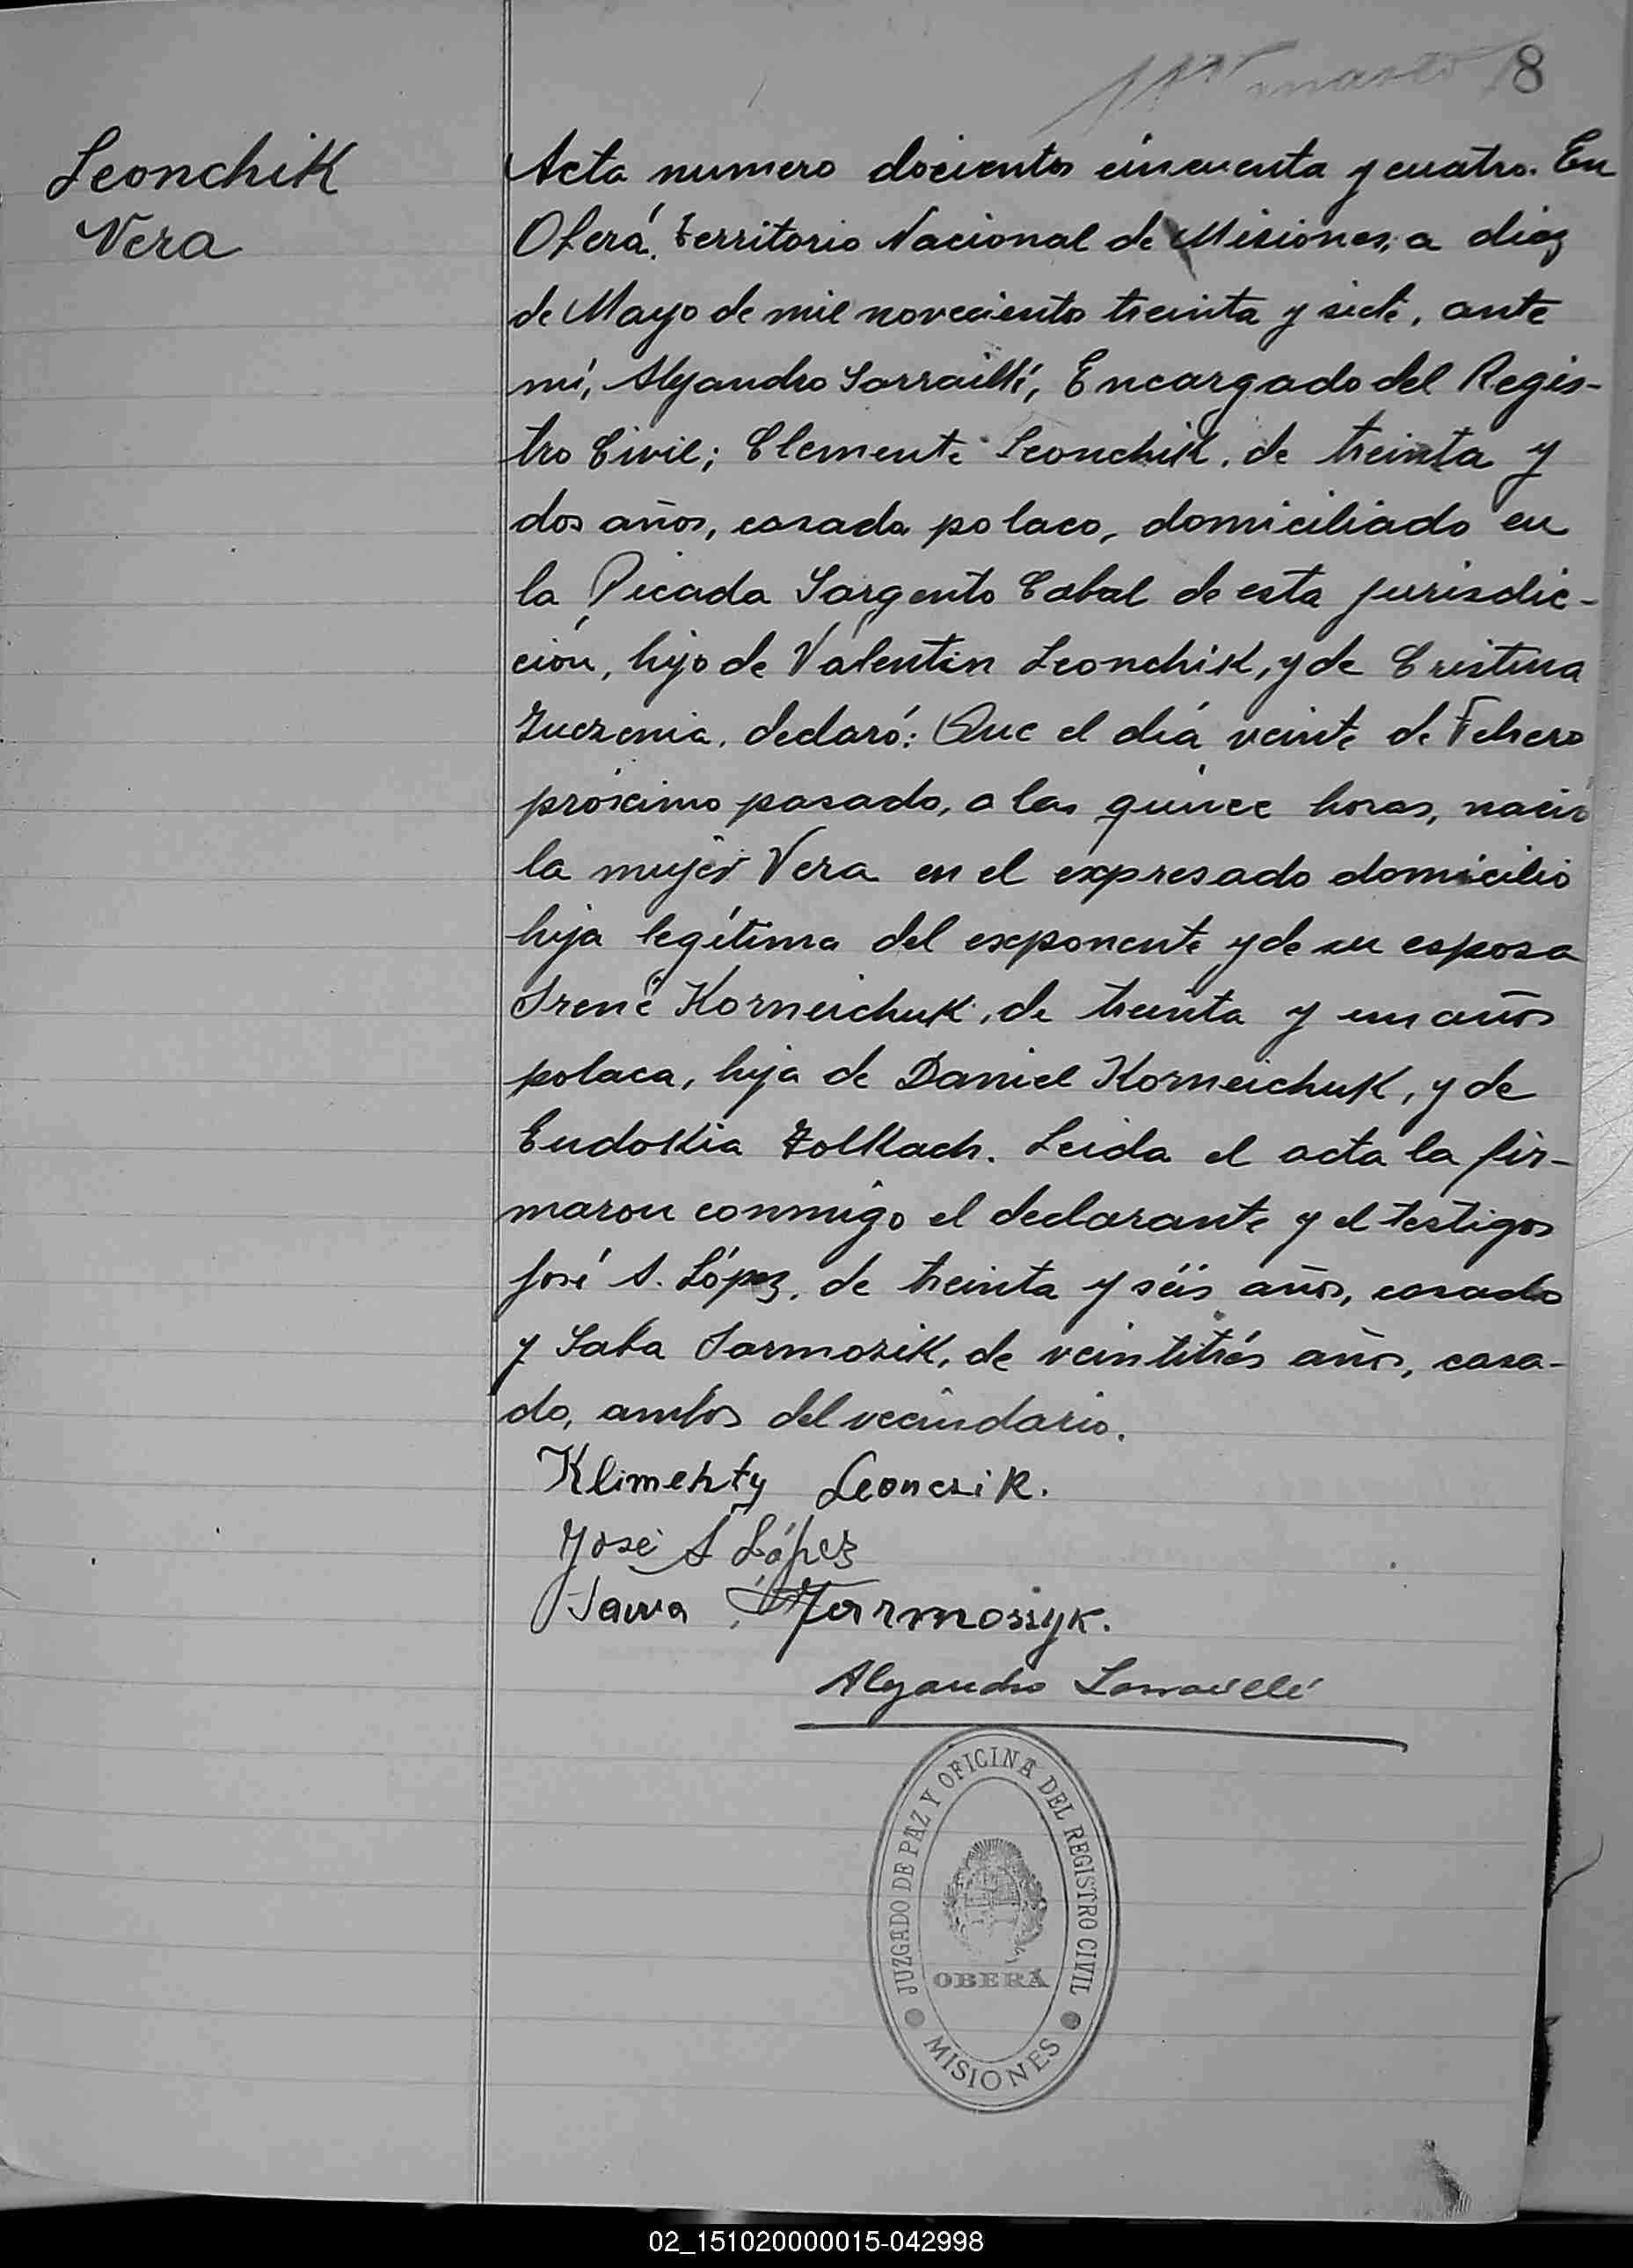 8
Leonchik
Vera
Acta numero docientos cincuenta y cuatro. En
Oberá, territorio Nacional de Misiones, a diez
de Mayo de mil novecientos treinta y siete, ante
mí, Alejandro Sarraillé, Encargado del Regis-
tro Civil; Clemente Leonchik, de treinta y
dos años, casado, polaco, domiciliado en
la Picada Sargento Cabal de esta jurisdic-
ción, hijo de Valentin Leonchik, y de Cristina
declaró: Que el día veinte de Febrero
próximo pasado, a las quince horas, nació
la mujer Vera en el expresado domicilio
hija legítima del exponente y de su esposa
Irene Korneichuk, de treinta y un años
polaca, hija de Daniel Korneichuk, y de
Eudokia Tolkach. Leida el acta la fir-
maron conmigo el declarante y el testigos
José S. López, de treinta y séis años, casado
y Saba Jarmosik, de veintitrés años, casa-
do, ambos del vecindario.
Klimehty Leonczik.
José S López
Sawa Jarmoszyk.
Alejandro Sarraillé
JUZGADO DE PAZ Y OFICINA DEL REGISTRO CIVIL
OBERÁ
MISIONES
02_151020000015-042998